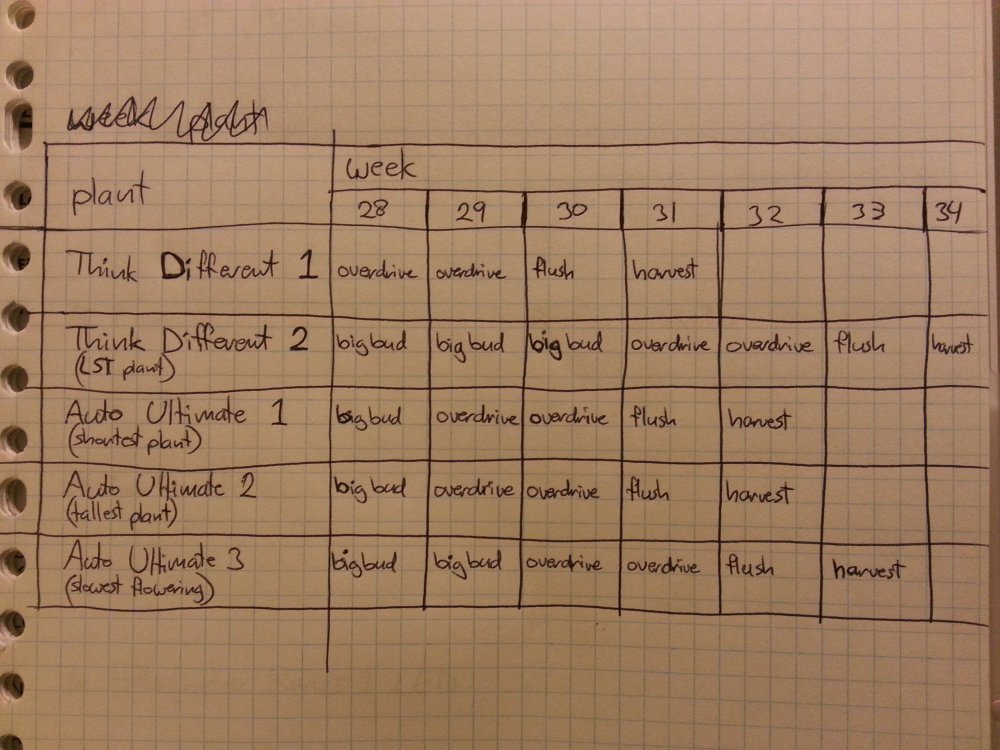 week plant
week
plant
28 29 30 31 32 33 34
Think Different 1 overdrive overdrive flush harvest
Think Different 2 big bud big bud big bud overdrive overdrive flush harvest
(LST plant)
Auto Ultimate 1 big bud overdrive overdrive flush harvest
(shortest plant)
Auto Ultimate 2 big bud overdrive overdrive flush harvest
(tallest plant)
Auto Ultimate 3 big bud big bud overdrive overdrive flush harvest
(slowest flowering)